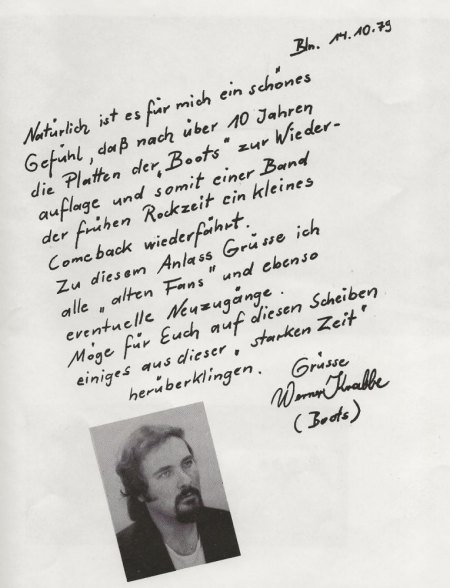 Bln. 14.10.79
Natürlich ist es für mich ein schönes
Gefühl, daß nach über 10 Jahren
die Platten der „Boots" zur Wieder-
auflage und somit einer Band
der frühen Rockzeit ein kleines
Comeback wiederfährt.
Zu diesem Anlass Grüsse ich
alle „alten Fans" und ebenso
eventuelle Neuzugänge.
Möge für Euch auf diesen Scheiben
einiges aus dieser „starken Zeit"
herüberklingen.
Grüsse
Werner Krabbe
(Boots)